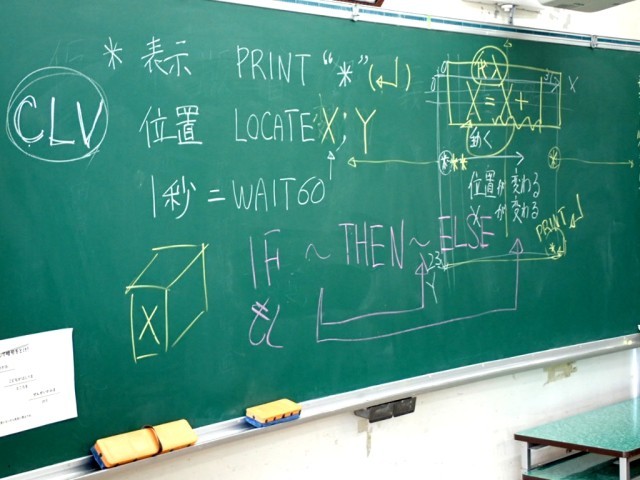 CLV
* 表示 PRINT "*" (↲)
位置 LOCATE X, Y
1秒 = WAIT60
IF ～ THEN ～ ELSE
もし
X
代入
X = X +
動く
0
X
* **
*
位置が変わる
Xが変わる
PRINT ↲
*
23
Y